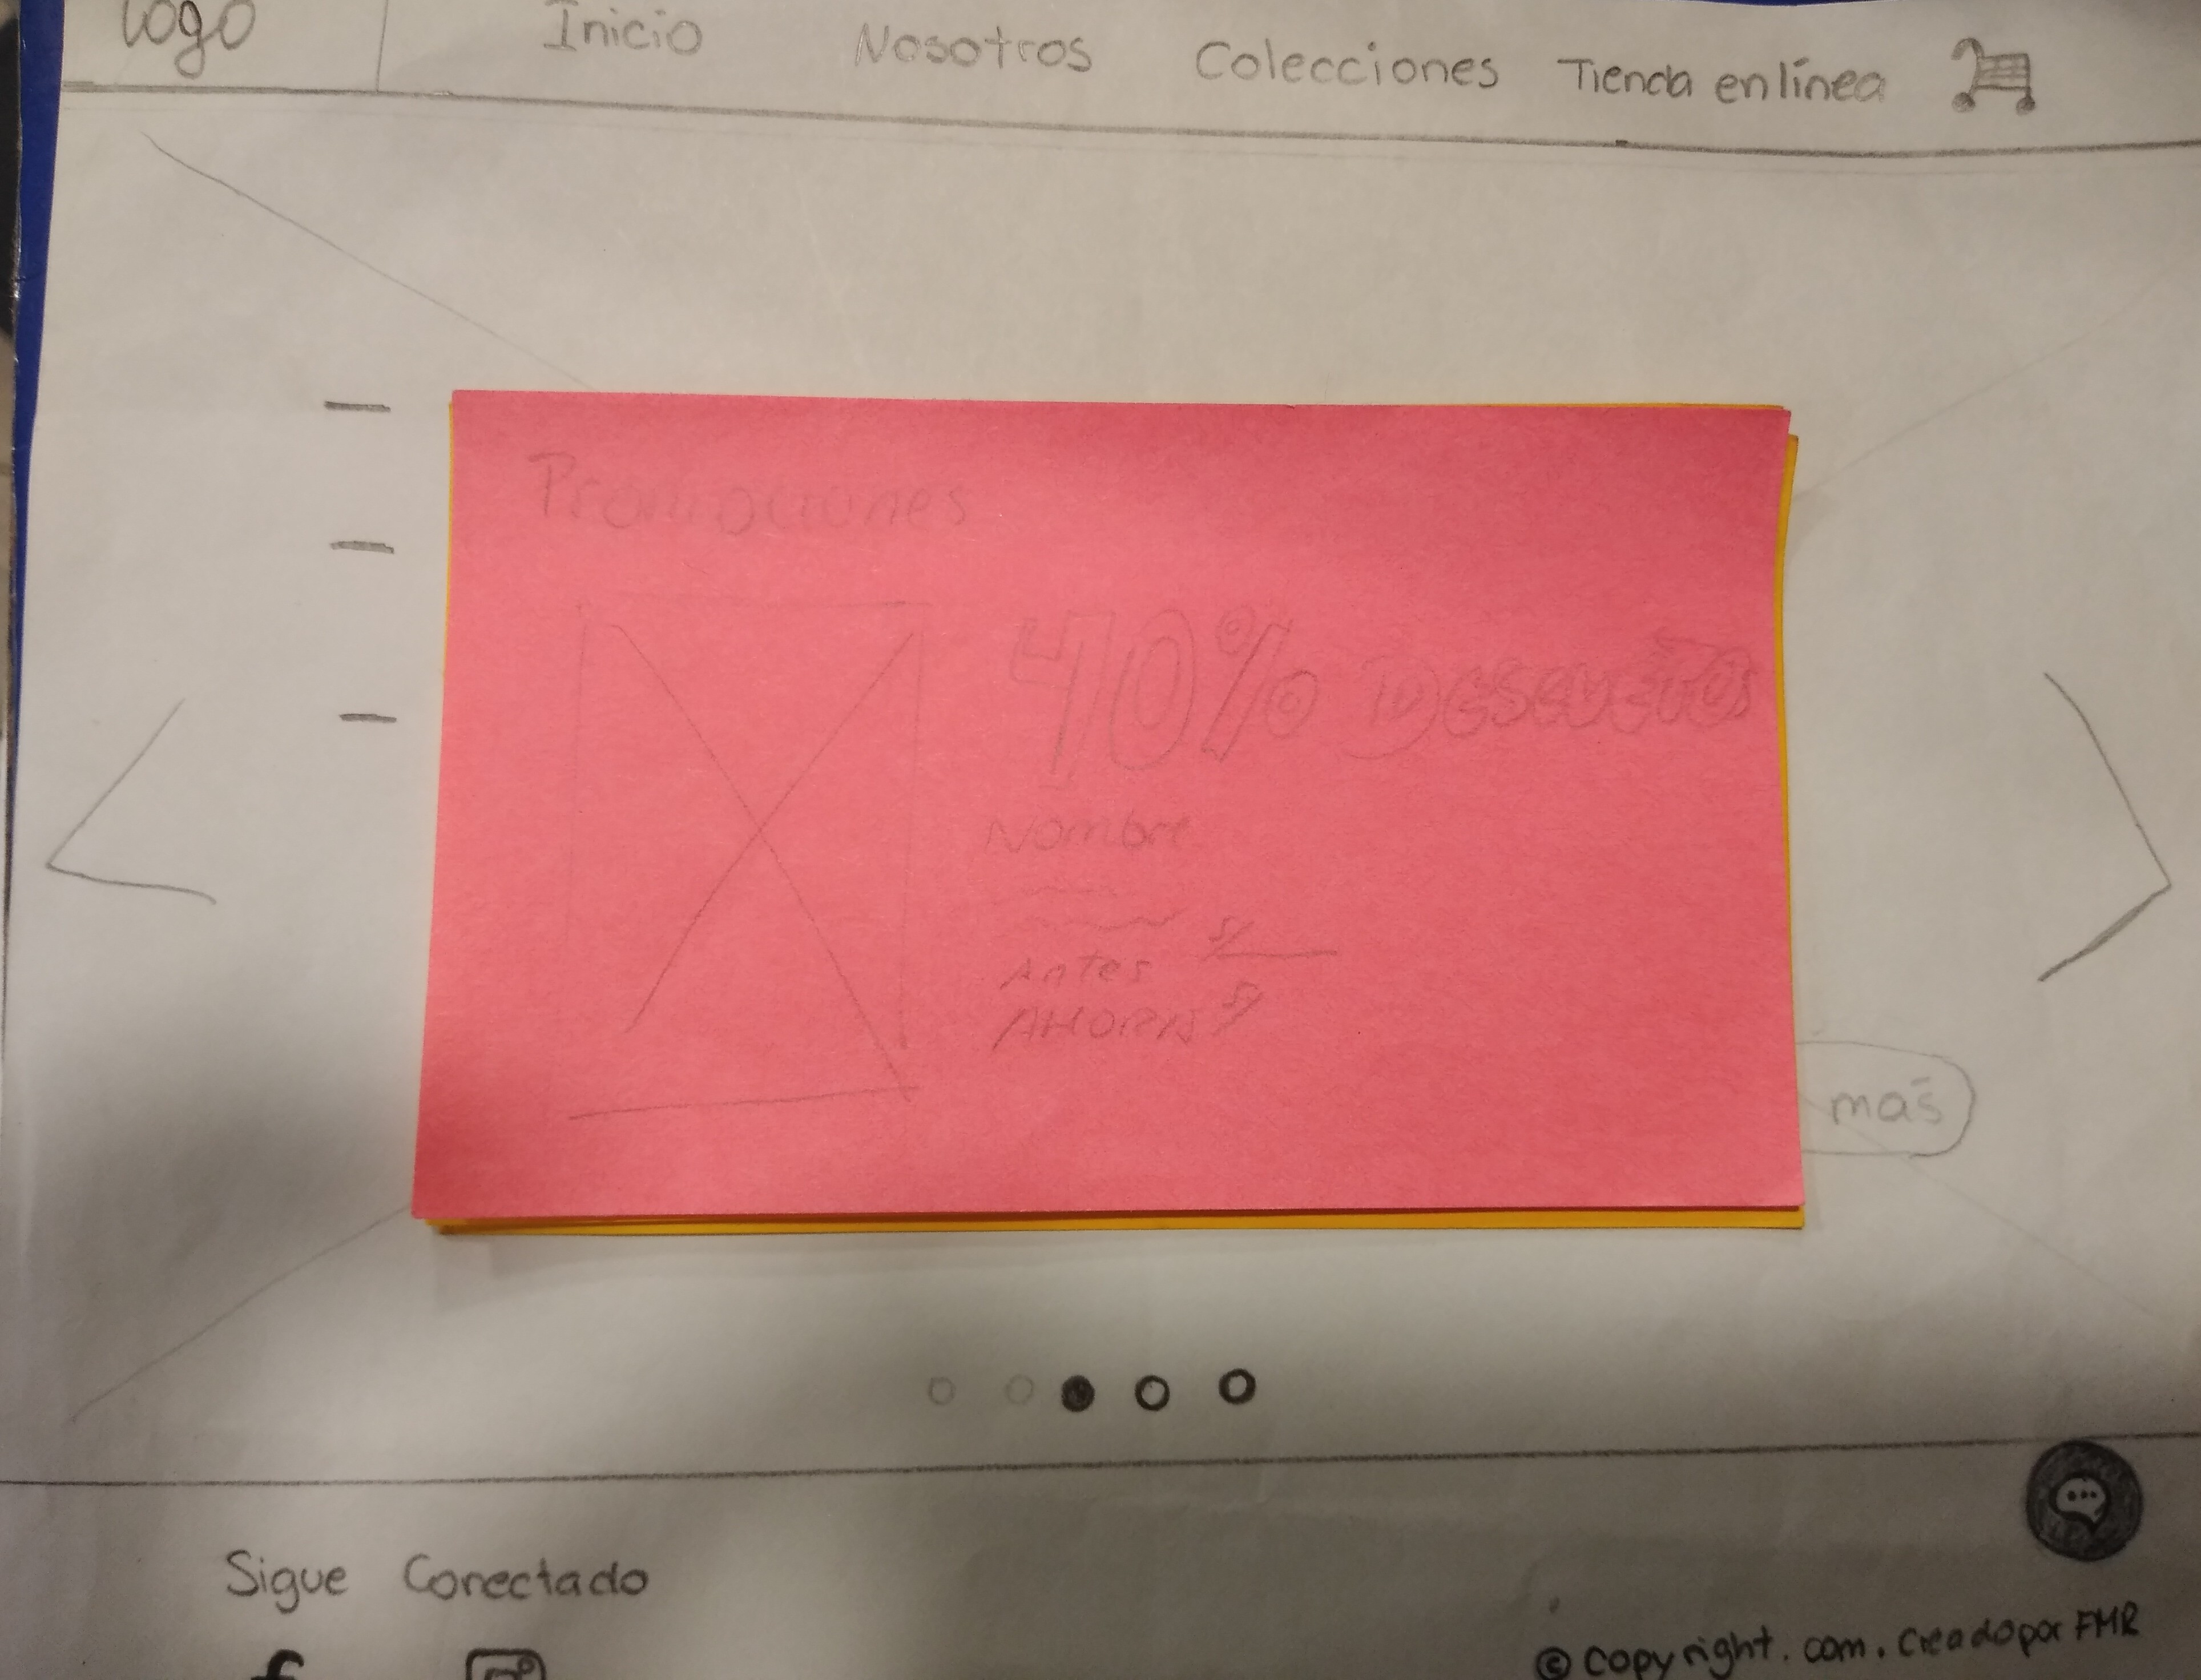 logo Inicio Nosotros Colecciones Tienda en línea
Promociones
40% Descuetos
Nombre
Antes S/
AHORA S/
más
Sigue Conectado
© copyright.com.creado por FMR